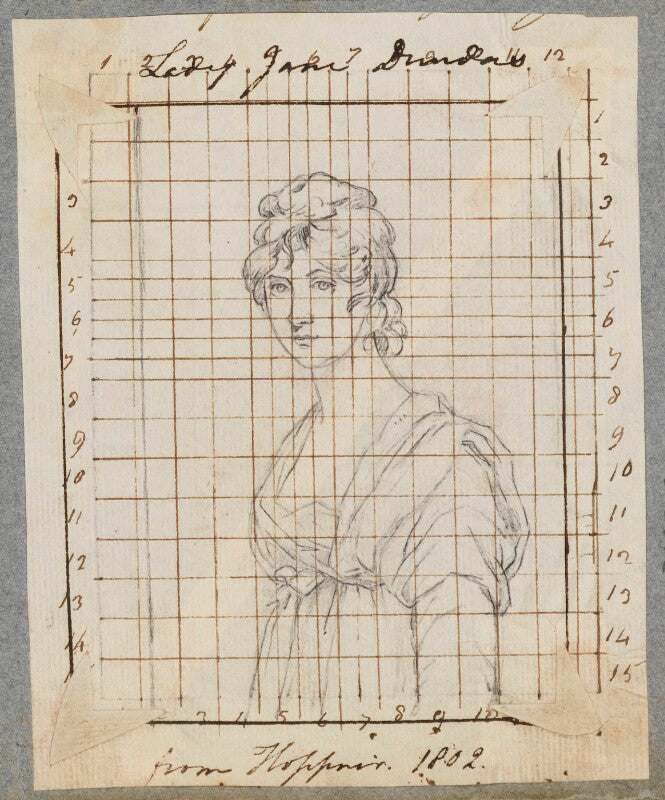 1 2 12
Lady Jane Dundas
11
1
2
3 3
4 4
5 5
6 6
7 7
8 8
9 9
10 10
11 11
12 12
13 13
14 14
15
2 3 4 5 6 7 8 9 10
from Hoppner. 1802.